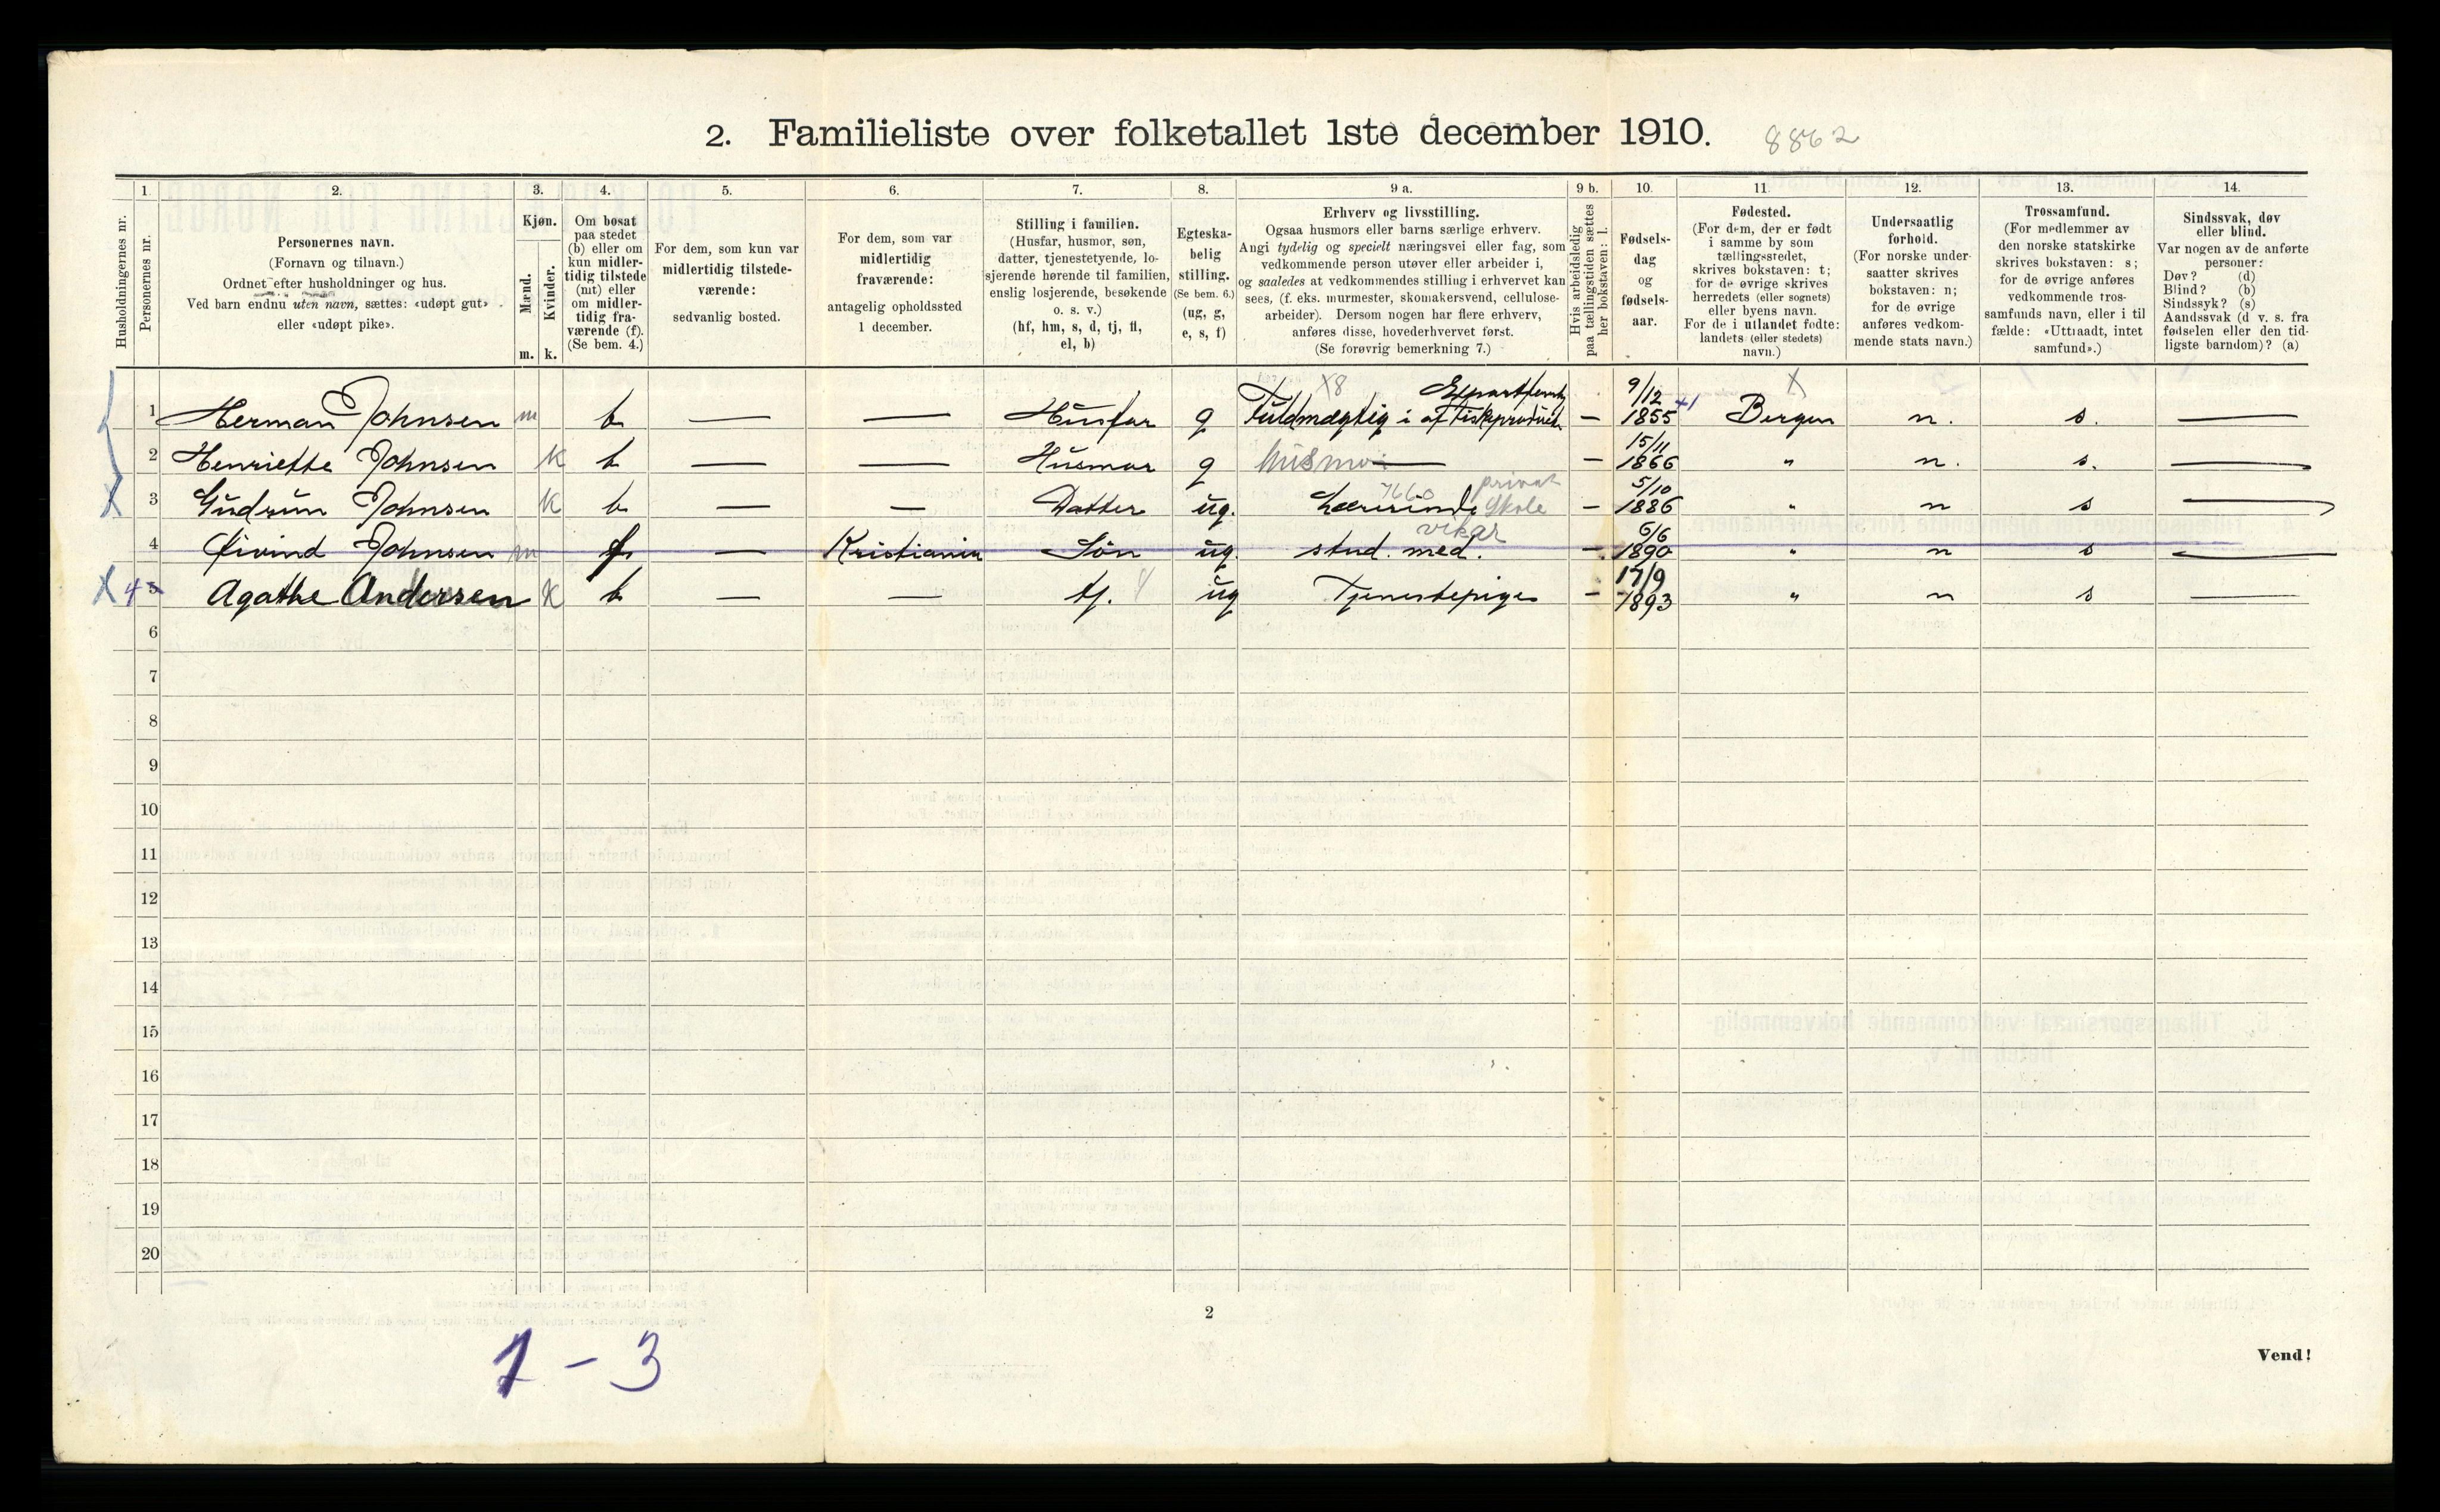 2. Familieliste over folketallet 1ste december 1910. 8862
1. 2. 3. 4. 5. 6. 7. 8. 9 a. 9 b. 10. 11. 12. 13. 14.
Husholdningernes nr.
Personernes nr.
Personernes navn.
(Fornavn og tilnavn.)
Ordnet efter husholdninger og hus.
Ved barn endnu uten navn, sættes: «udøpt gut»
eller «udøpt pike».
Kjøn.
Mænd.
Kvinder.
m. k.
Om bosat
paa stedet
(b) eller om
kun midler-
tidig tilstede
(mt) eller
om midler-
tidig fra-
værende (f).
(Se bem. 4.)
For dem, som kun var
midlertidig tilstede-
værende:
sedvanlig bosted.
For dem, som var
midlertidig
fraværende:
antagelig opholdssted
1 december.
Stilling i familien.
(Husfar, husmor, søn,
datter, tjenestetyende, lo-
sjerende hørende til familien,
enslig losjerende, besøkende
o. s. v.)
(hf, hm, s, d, tj, fl,
el, b)
Egteska-
belig
stilling.
(Se bem. 6.)
(ug, g,
e, s, f)
Erhverv og livsstilling.
Ogsaa husmors eller barns særlige erhverv.
Angi tydelig og specielt næringsvei eller fag, som
vedkommende person utøver eller arbeider i,
og saaledes at vedkommendes stilling i erhvervet kan
sees, (f. eks. murmester, skomakersvend, cellulose-
arbeider). Dersom nogen har flere erhverv,
anføres disse, hovederhvervet først.
(Se forøvrig bemerkning 7.)
Hvis arbeidsledig
paa tællingstiden sættes
her bokstaven: l.
Fødsels-
dag
og
fødsels-
aar.
Fødested.
(For dem, der er født
i samme by som
tællingsstedet,
skrives bokstaven: t;
for de øvrige skrives
herredets (eller sognets)
eller byens navn.
For de i utlandet fødte:
landets (eller stedets)
navn.)
Undersaatlig
forhold.
(For norske under-
saatter skrives
bokstaven: n;
for de øvrige
anføres vedkom-
mende stats navn.)
Trossamfund.
(For medlemmer av
den norske statskirke
skrives bokstaven: s;
for de øvrige anføres
vedkommende tros-
samfunds navn, eller i til
fælde: «Uttraadt, intet
samfund».)
Sindssvak, døv
eller blind.
Var nogen av de anførte
personer:
Døv? (d)
Blind? (b)
Sindssyk? (s)
Aandssvak (d v. s. fra
fødselen eller den tid-
ligste barndom)? (a)
1 Herman Johnsen m b — — Husfar g Fuldmægtig i af fiskeprodukt. — 9/12 1855 Bergen n. s. —
2 Henriette Johnsen k b — — Husmor g husmor — 15/11 1866 " n. s. —
3 Gudrun Johnsen k b — — Datter ug. Lærerinde privat skole vikar — 5/10 1886 " n s —
4 Øivind Johnsen m f — Kristiania Søn ug. stud. med. — 6/6 1890 " n s —
X 4 5 Agathe Andersen k b — — tj. ug Tjenestepige — 17/9 1893 " n s —
6
7
8
9
10
11
12
13
14
15
16
17
18
19
20
2
1 – 3
Vend!